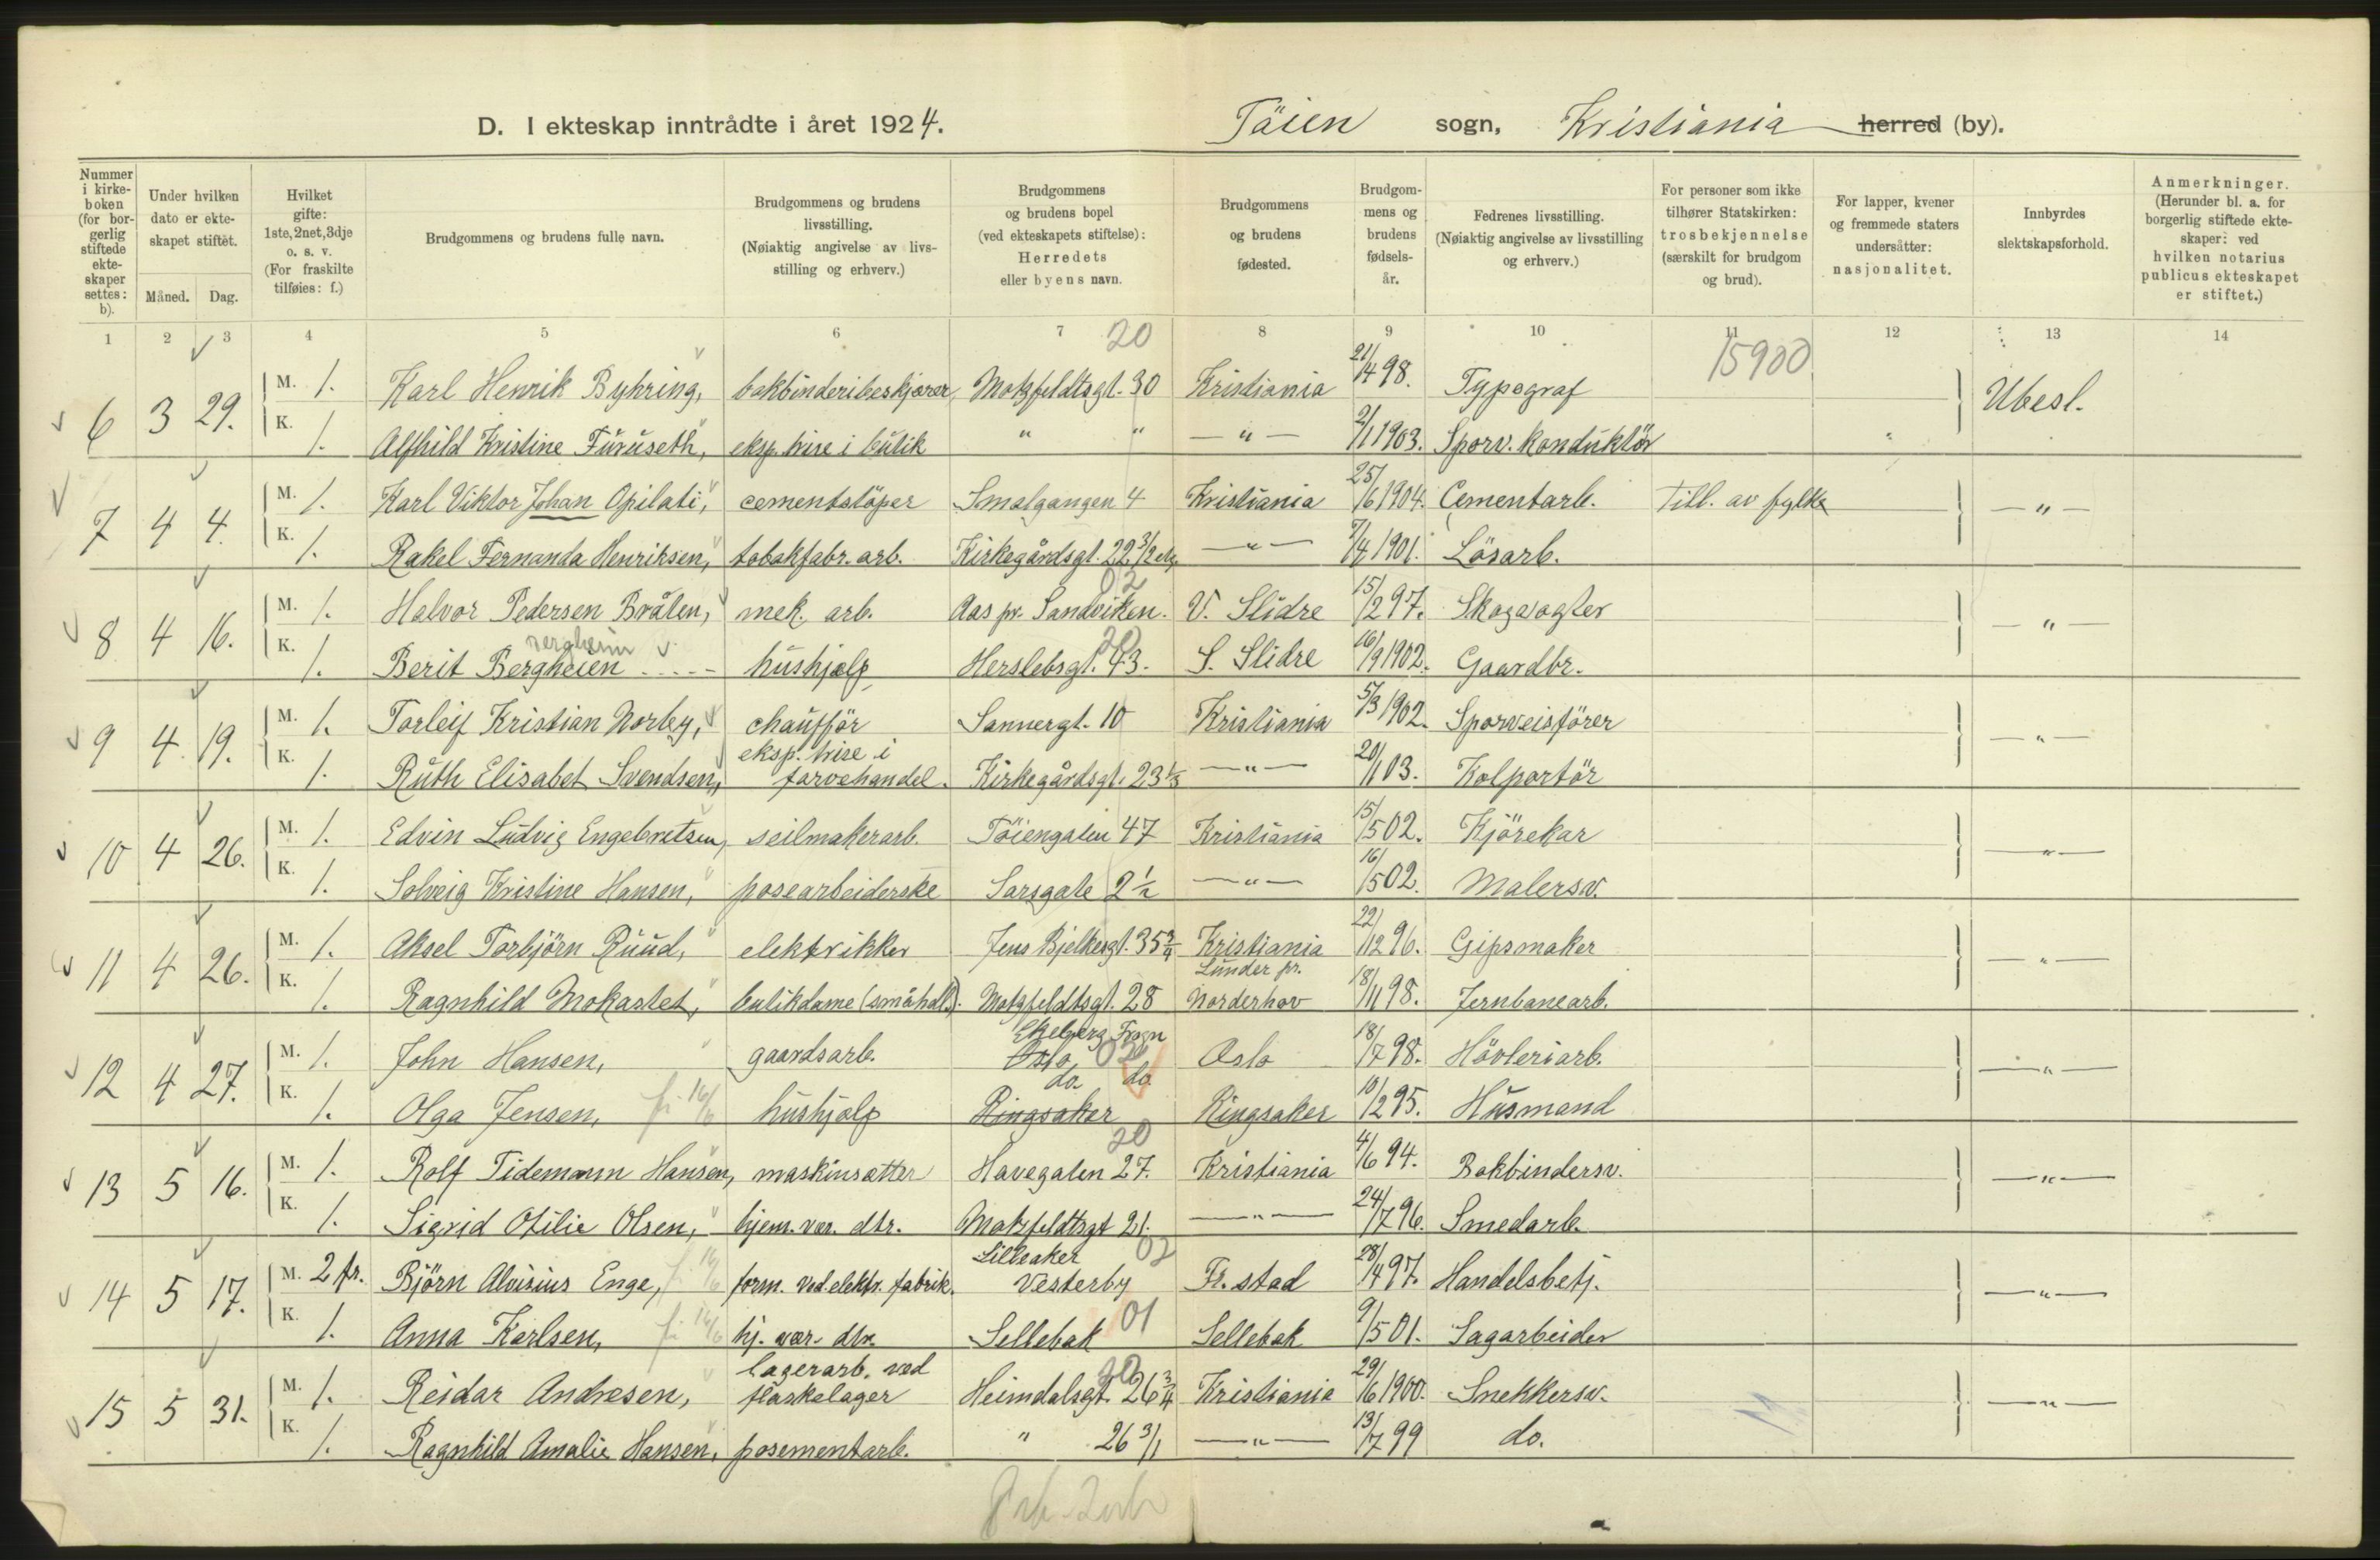 D. I ekteskap inntrådte i året 1924. Töien sogn, Kristiania herred (by).
Nummer i kirkeboken (for borgerlig stiftede ekteskaper settes: b).
Under hvilken dato er ekteskapet stiftet.
Måned. Dag.
Hvilket gifte: 1ste, 2net, 3dje o. s. v. (For fraskilte tilføies: f.)
Brudgommens og brudens fulle navn.
Brudgommens og brudens livsstilling. (Nøiaktig angivelse av livsstilling og erhverv.)
Brudgommens og brudens bopel (ved ekteskapets stiftelse): Herredets eller byens navn.
Brudgommens og brudens fødested.
Brudgommens og brudens fødselsår.
Fedrenes livsstilling. (Nøiaktig angivelse av livsstilling og erhverv.)
For personer som ikke tilhører Statskirken: trosbekjennelse (særskilt for brudgom og brud).
For lapper, kvener og fremmede staters undersåtter: nasjonalitet.
Innbyrdes slektskapsforhold.
Anmerkninger. (Herunder bl. a. for borgerlig stiftede ekteskaper: ved hvilken notarius publicus ekteskapet er stiftet.)
1 2 3 4 5 6 7 8 9 10 11 12 13 14
20 15900
6 3 29. M. 1. Karl Henrik Byhring, bokbinderibeskjærer Motzfeldtsgt. 30 Kristiania 21/4 98. Typograf Ubesl.
K. 1. Alfhild Kristine Furuseth, eksp.trise i butik " " — " — 2/1 1903. Sporv. konduktör
7 4 4. M. 1. Karl Viktor Johan Opilati, cementstöper Smalgangen 4 Kristiania 25/6 1904. Cementarb. Till. av fylke — " —
K. 1. Rakel Fernanda Henriksen, tobakfabr. arb. Kirkegårdsgt. 22 — " — /4 1901. Lösarb.
8 4 16. M. 1. Halvor Pedersen Bråten, mek. arb. Aas pr. Sandviken. V. Slidre 15/2 97. Skogvogter — " —
Bergheim 20
K. 1. Berit Bergheien hushjælp Herslebsgt. 43. S. Slidre 16/9 1902. Gaardbr.
9 4 19. M. 1. Torleif Kristian Norby, chauffør Sannergt. 10 Kristiania 5/3 1902. Sporveisförer — " —
K. 1. Ruth Elisabet Svendsen, eksp.trise i farvehandel. Kirkegårdsgt. 23 — " — 20/1 03. Kolportör
10 4 26. M. 1. Edvin Ludvig Engebretsen, seilmakerarb. Töiengaten 47 Kristiania 15/5 02. Kjörekar — " —
K. 1. Solveig Kristine Hansen, posearbeiderske Sarsgate 2 1/2 — " — 16/5 02. Malersv.
11 4 26. M. 1. Aksel Torbjörn Ruud, elektrikker Jens Bjelkesgt. 35 3/4 Kristiania 22/12 96. Gipsmaker — " —
K. 1. Ragnhild Mokastet, butikdame (småhdl.). Motzfeldtsgt. 28 Lunder pr. Norderhov 18/11 98. Jernbanearb.
12 4 27. M. 1. John Hansen, gaardsarb. Ekeberg Frogn Oslo 02 Oslo 18/7 98. Hövleriarb. — " —
K. 1. Olga Jensen, hushjælp do. do. Ringsaker Ringsaker 10/2 95. Husmand
20
13 5 16. M. 1. Rolf Tidemann Hansen, maskinsætter Havegaten 27. Kristiania 4/6 94. Bokbindersv. — " —
K. 1. Sigrid Otilie Olsen, hjem. vær. dtr. Motzfeldtsgt 21. — " — 24/7 96. Smedarb.
14 5 17. M. 2 fr. Björn Aloisius Enge, form. ved elektr. fabrik. Lilleaker Vesterby 02 Fr.stad 28/4 97. Handelsbetj. — " —
K. 1. Anna Karlsen, hj. vær. dtr. Sellebak 01 Sellebak 9/5 01. Sagarbeider
15 5 31. M. 1. Reidar Andresen, lagerarb. ved flaskelager Heimdalsgt. 26 3/4 20 Kristiania 29/6 1900. Snekkersv. — " —
K. 1. Ragnhild Amalie Hansen, posementarb. " 26 3/1 — " — 13/7 99 do.